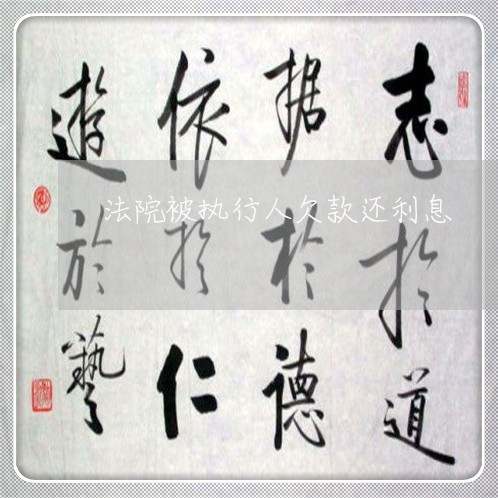 志扵道
据於德
依扵仁
遊於藝
法院被执行人欠款还利息